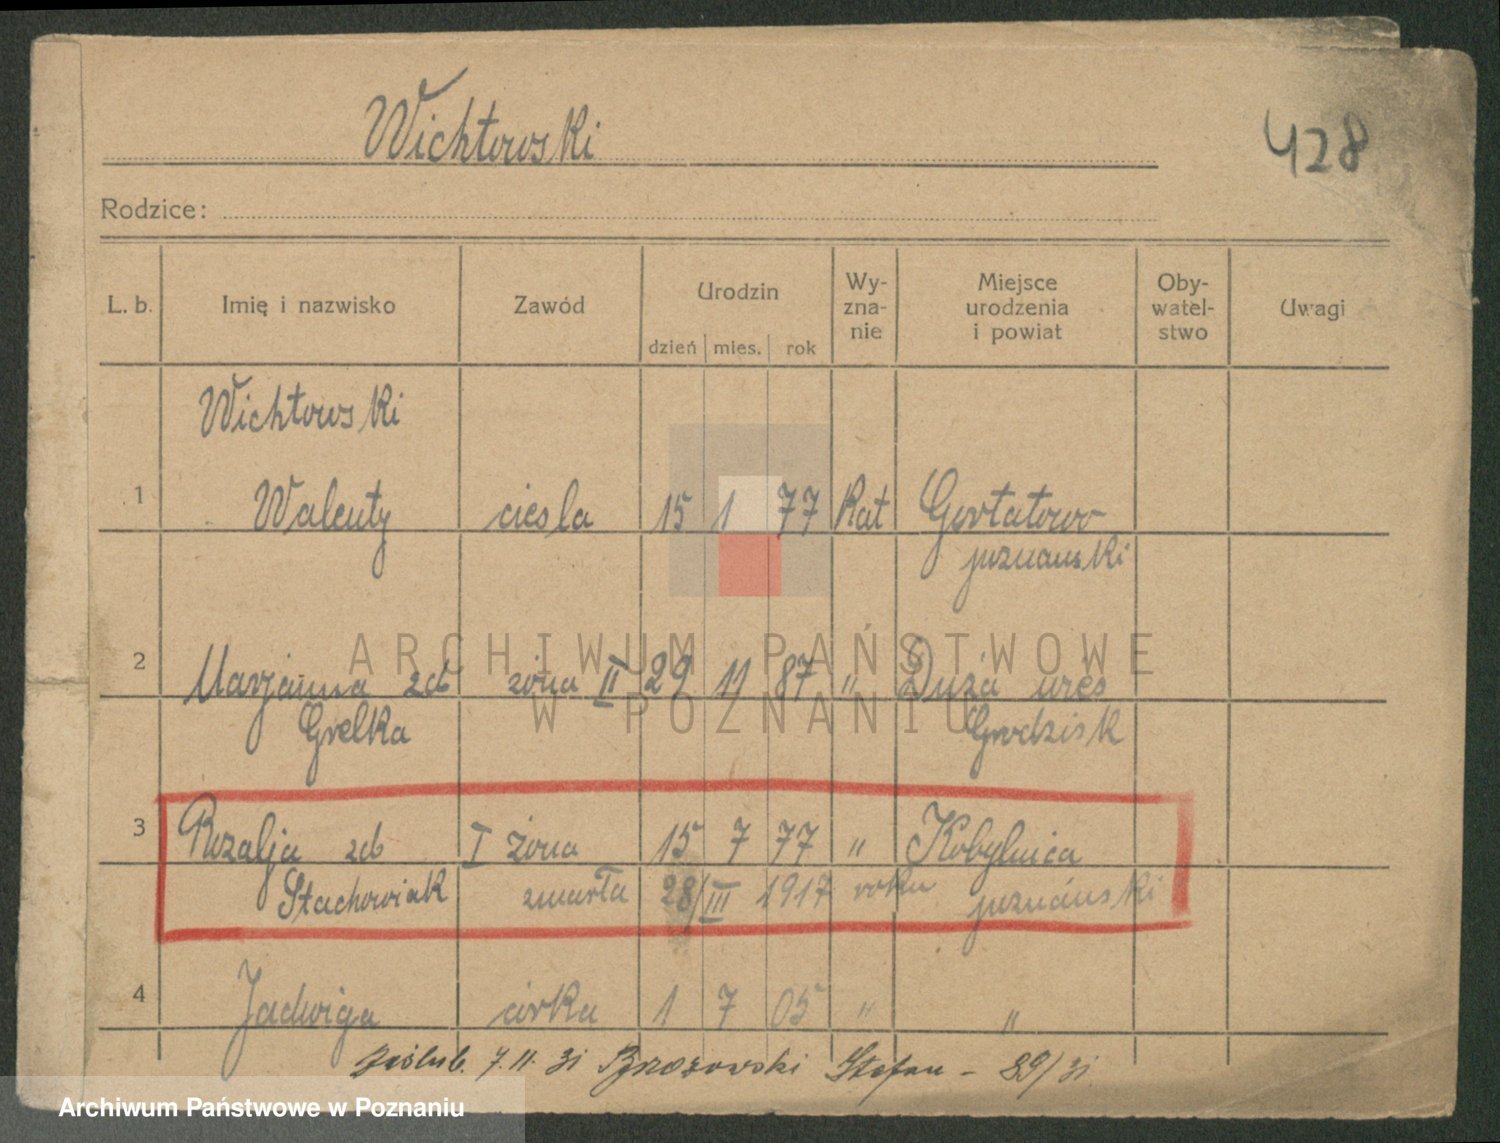 Wichtowski
428
Rodzice:
L. b. Imię i nazwisko Zawód Urodzin dzień mies. rok Wy-zna-nie Miejsce urodzenia i powiat Oby-watel-stwo Uwagi
Wichtowski
1 Walenty ciesla 15 1 77 Kat Gortatowo
poznanski
2 Marjanna zd żona II 29 11 87 " Duża
Grelka Grodzisk
3 Rozalja zd I żona 15 7 77 " Kobylnica
Stachowiak zmarła 28/III 1917 roku poznański
4 Jadwiga córka 1 7 05 " "
zaślub. 7.11.31 Brzozowski Stefan - 89/31
ARCHIWUM PAŃSTWOWE
W POZNANIU
Archiwum Państwowe w Poznaniu